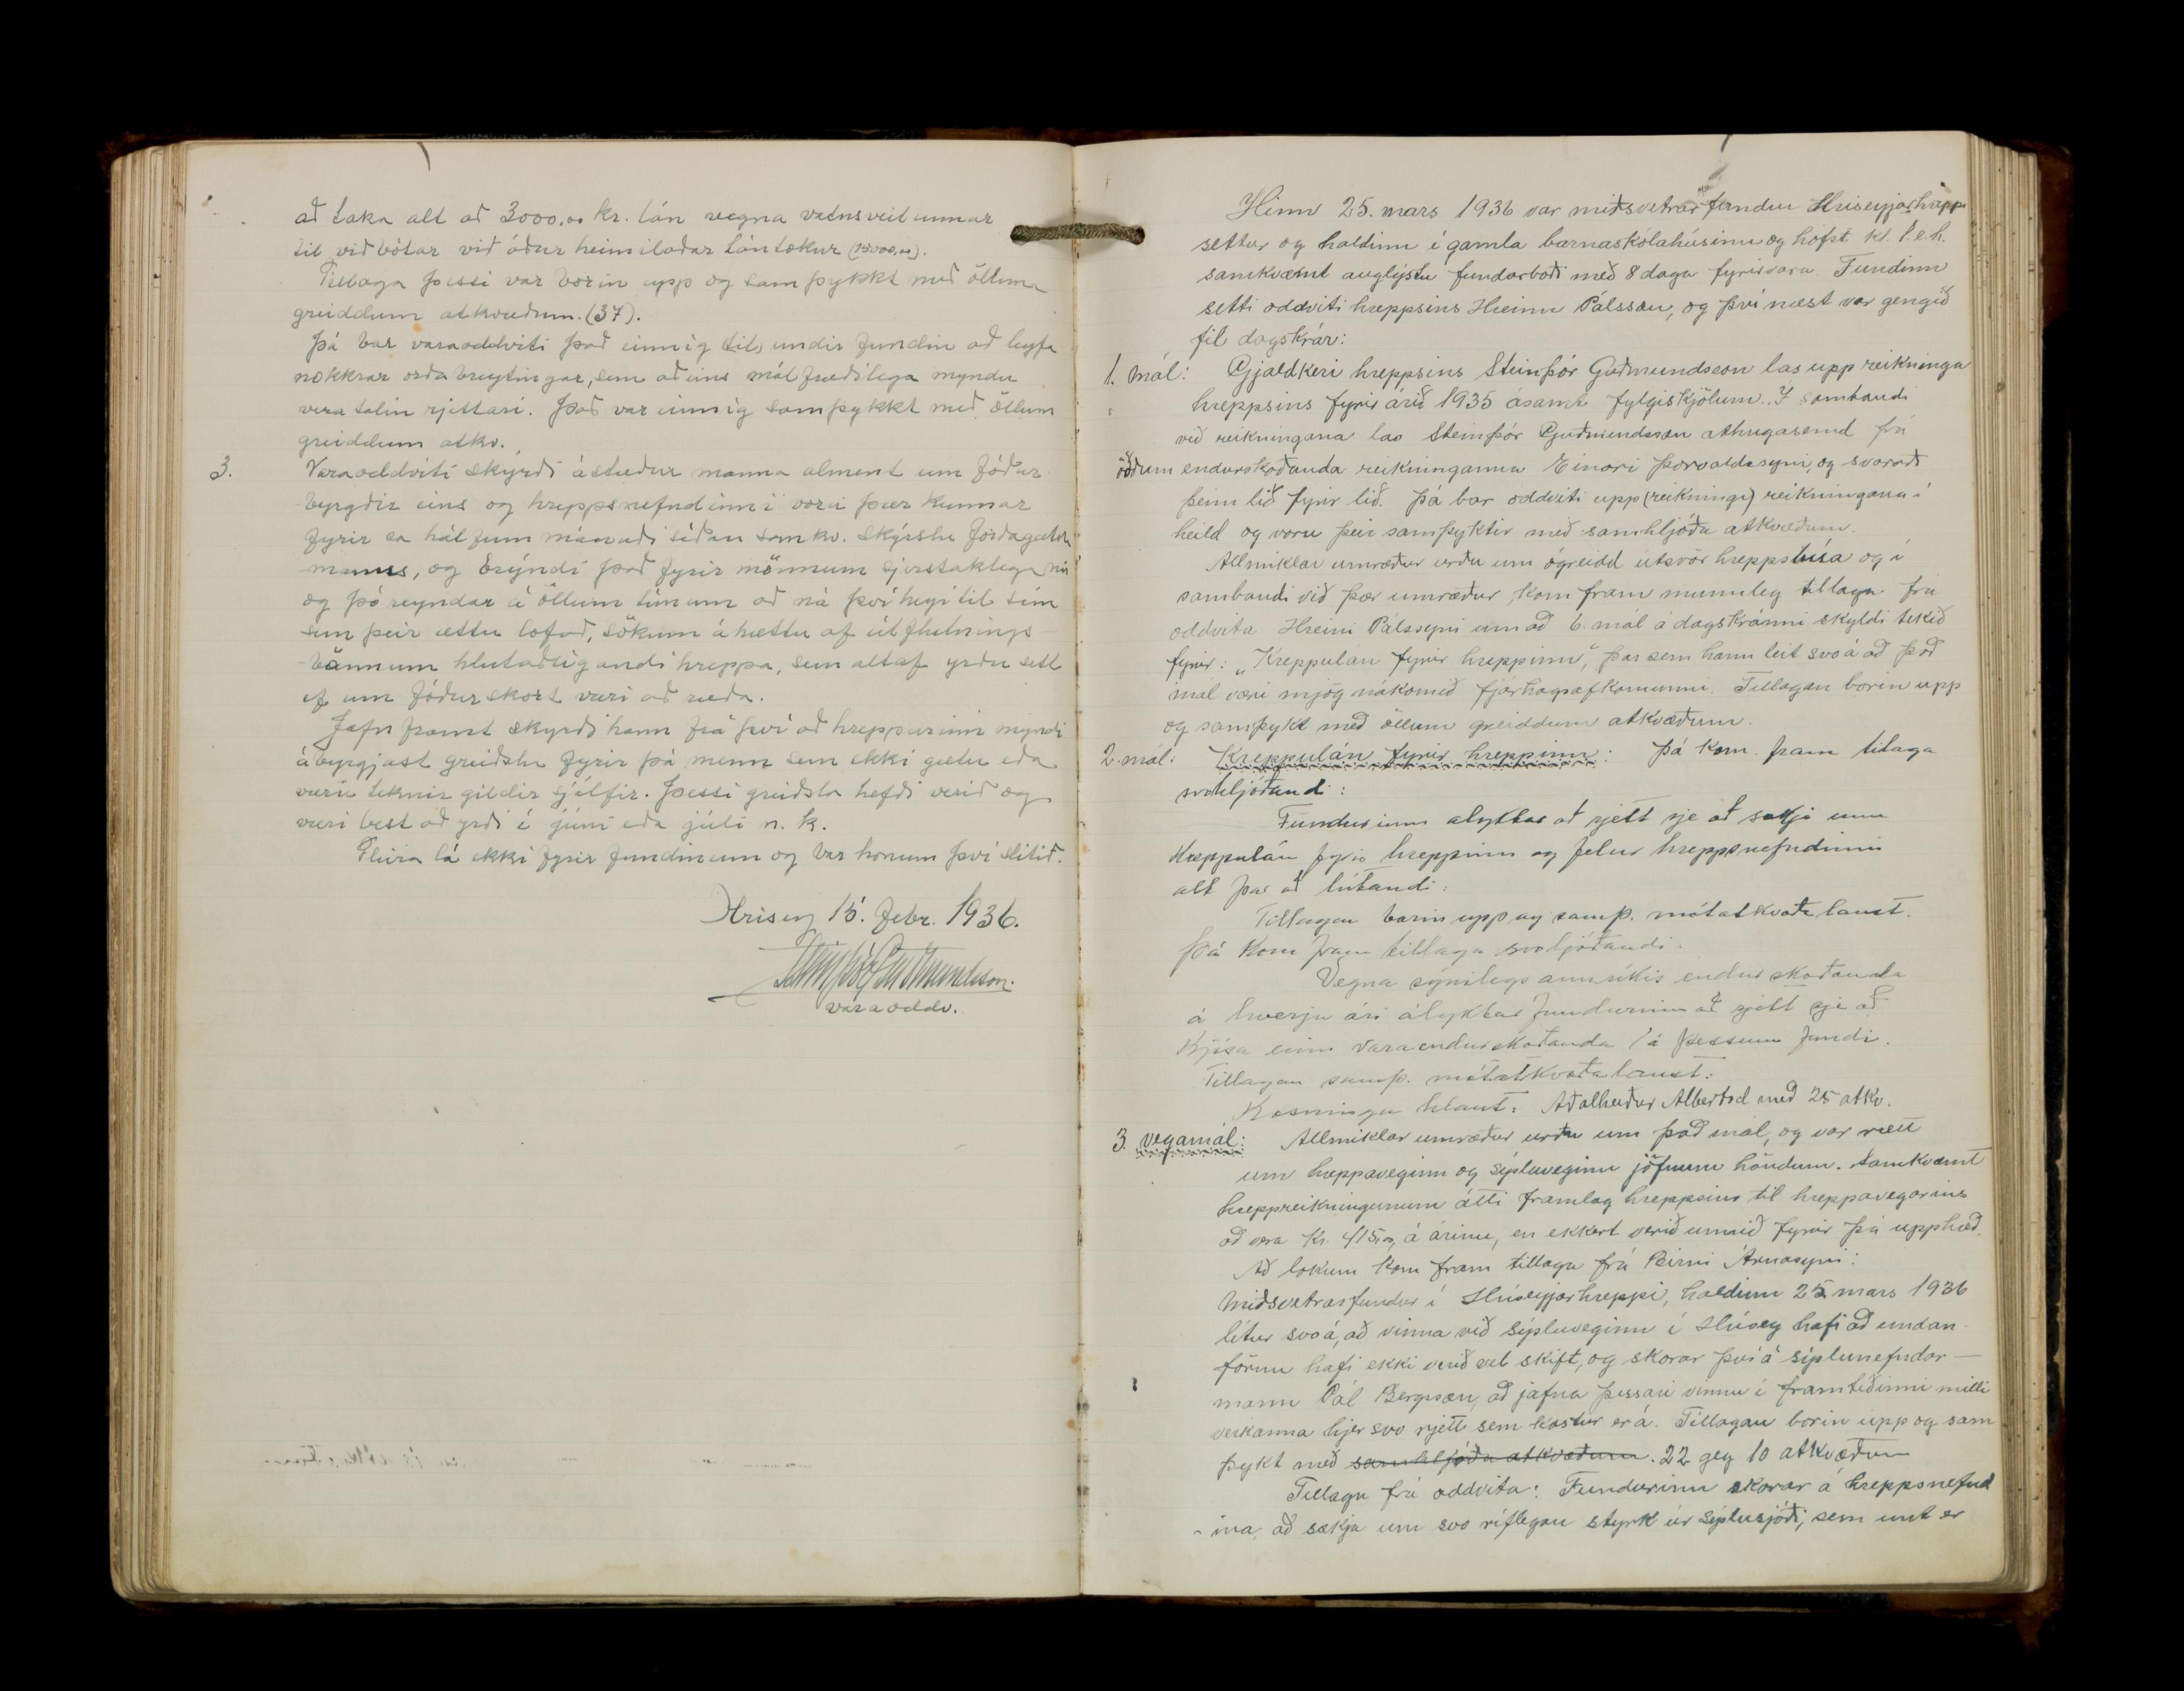 að taka alt að 3000,00 kr. lán vegna vatnsveitunnar
til viðbótar við áður heimilaðar lántökur (15000,00).
Tillaga þessi var borin upp og samþykkt með öllum
greiddum atkvæðum. (37).
Þá bar varaoddviti það einnig til, undir fundin að leyfa
nokkrar orðabreytingar, sem aðeins málfræðilega myndu
vera talin rjettari. Það var einnig samþykkt með öllum
greiddum atkv.
3. Varaoddviti skýrði ástæður manna alment um fóður
byrgðir eins og hreppsnefndinni voru þær kunnar
fyrir ca hálfum mánuði síðan samkv. skýrslu forðagætslu
manns, og brýndi það fyrir mönnum sjerstaklega nú
og þó reyndar á öllum tímum að ná því heyi til sín
sem þeir ættu lofað, sökum áhættu af útflutnings
bönnum hlutaðeigandi hreppa, sem altaf yrðu sett
ef um fóðurskort væri að ræða.
Jafnframt skyrði hann frá því að hreppurinn myndi
ábyrgjast greiðslu fyrir þá menn sem ekki gætu eða
væru teknir gildir sjálfir. Þessi greiðsla hefði verið og
væri best að yrði í júní eða júlí n. k.
Fleira lá ekki fyrir fundinum og var honum því slitið.
Hrisey 15. febr. 1936.
Steinþór Guðmundsson.
varaoddv.
Hinn 25. mars 1936 var miðsvetrarfundur Hríseyjarhrepps
settur og haldinn í gamla barnaskólahúsinu og hófst kl. 1 e.h.
samkvæmt auglýstu fundarboði með 8 daga fyrirvara. Fundinn
setti oddviti hreppsins Hreinn Pálsson, og því næst var gengið
til dagskrár:
1. mál: Gjaldkeri hreppsins Steinþór Guðmundsson las upp reikninga
hreppsins fyrir árið 1935 ásamt fylgiskjölum. Í sambandi
við reikningana las Steinþór Guðmundsson athugasemd frá
öðrum endurskoðanda reikninganna Einari Þorvaldssyni, og svaraði
þeim lið fyrir lið. Þá bar oddviti upp (reikningi) reikningana í
heild og voru þeir samþyktir með samhljóða atkvæðum.
Allmiklar umræður urðu um ógreidd útsvör hreppsbúa og í
sambandi við þær umræður, kom fram munnleg tillaga frá
oddvita Hreini Pálssyni um að 6. mál á dagskránni skyldi tekið
fyrir: „Kreppulán fyrir hreppinn“, þar sem hann leit svo á að það
mál væri mjög nákomið fjárhagsafkomunni. Tillagan borin upp
og samþykt með öllum greiddum atkvæðum.
2. mál: Kreppulán fyrir hreppinn: Þá kom fram tilaga
svohljóðandi:
Fundurinn alyktar að rjett sje að sækja um
Kreppulán fyrir hreppinn og felur hreppsnefndinni
alt þar að lútandi:
Tillagan borin upp og samþ. mótatkvæða laust.
Þá kom fram tillaga svoljóðandi:
Vegna sýnilegs annríkis endurskoðanda
á hverju ári ályktar fundurinn að rjett sje að
Kjósa einn varaendurskoðanda á þessum fundi.
Tillagan samþ. mótatkvæðalaust:
Kosningu hlaut: Aðalheiður Albertsd með 25 atkv.
3. vegamál: Allmiklar umræður urðu um það mál, og var rætt
um hreppaveginn og sýsluveginn jöfnum höndum. Samkvæmt
hreppreikningunum átti framlag hreppsins til hreppavegarins
að vera kr. 415,00, á árinu, en ekkert verið unnið fyrir þá upphæð.
Að lokum kom fram tillaga frá Birni Árnasyni:
Miðsvetrarfundur í Hríseyjarhreppi, haldinn 25. mars 1936
lítur svo á, að vinna við sýsluveginn í Hrísey hafi að undan-
förnu hafi ekki verið vel skift, og skorar því á sýslunefndar-
mann Pál Bergsson, að jafna þessari vinnu í framtíðinni milli
verkanna hjer svo rjett sem kostur er á. Tillagan borin upp og sam
þykt með samhljóða atkvæðum. 22 geg 10 atkvæðum
Tillaga frá oddvita: Fundurinn skorar á hreppsnefnd
-ina, að sækja um svo ríflegan styrk úr sýslusjóði, sem unt er